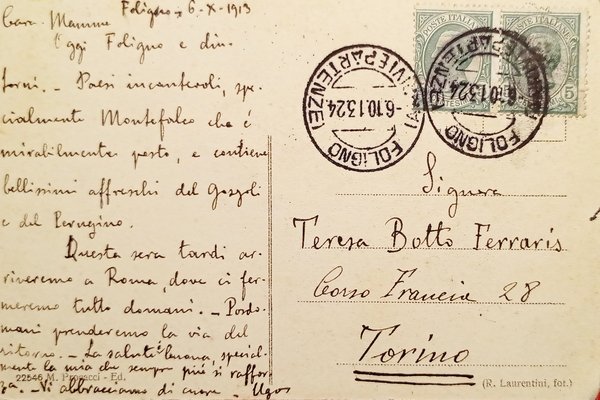 Foligno, 6-X-1913
Cara Mamma
Oggi Foligno e din-
torni. - Paesi incantevoli, spe-
cialmente Montefalco che è
mirabilmente posto, e contiene
bellissimi affreschi del Gozzoli
e del Perugino.
Questa sera tardi ar-
riveremo a Roma, dove ci fer-
meremo tutto domani. - Posdo-
mani prenderemo la via del
ritorno. - La salute è buona, special-
mente la mia che sempre più si raffor-
za. - Vi abbracciamo di cuore - Ugo
22546 M. Procacci - Ed.
POSTE ITALIANE
POSTE ITALIANE
5
FOLIGNO
-6.10.13.24
(ARRIVI E PARTENZE)
FOLIGNO
-6.10.13.24
(ARRIVI E PARTENZE)
Signora
Teresa Botto Ferraris
Corso Francia 28
Torino
(R. Laurentini, fot.)